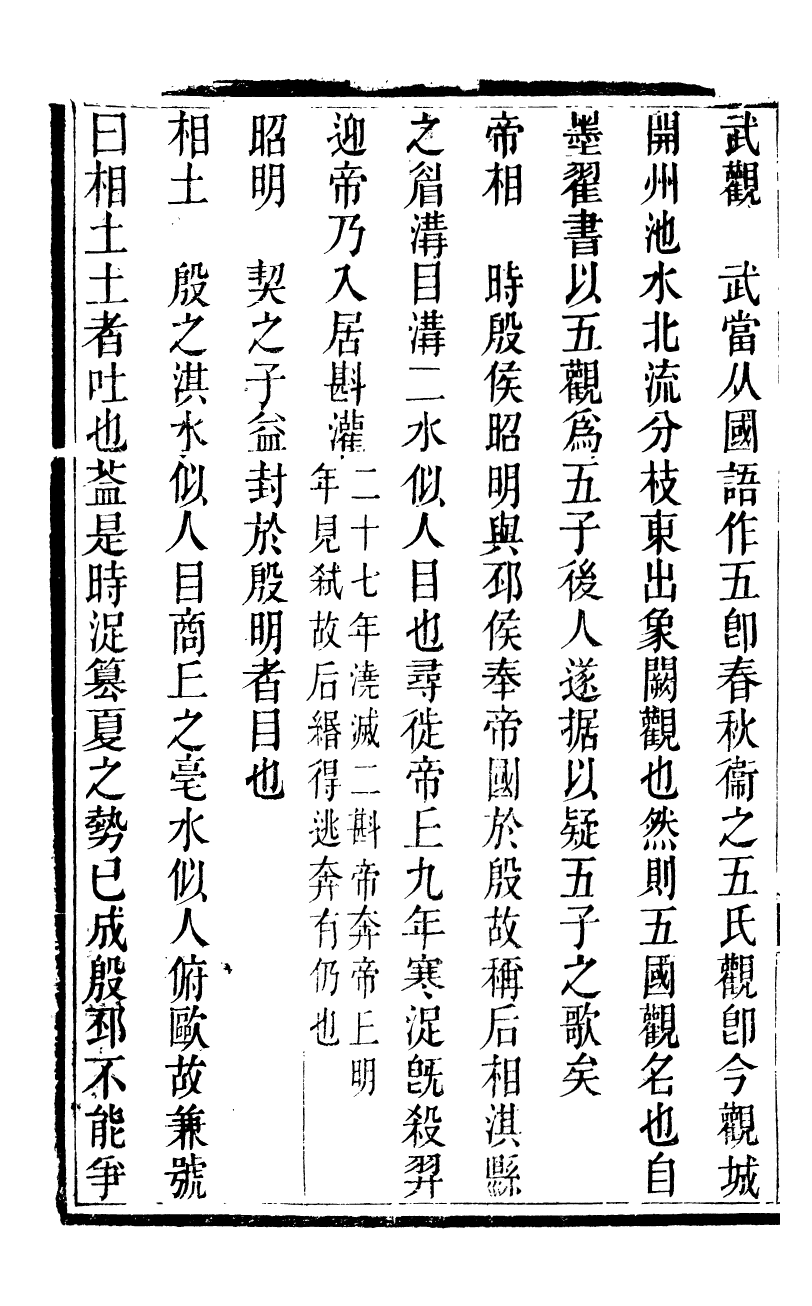 武觀　武當从國語作五卽春秋衞之五氏觀卽今觀城
開州池水北流分枝東出象闕觀也然則五國觀名也自
墨翟書以五觀爲五子後人遂据以疑五子之歌矣
帝相　時殷侯昭明與邳侯奉帝國於殷故稱后相淇縣
之眉溝目溝二水似人目也尋徙帝丘九年寒浞旣殺羿
迎帝乃入居斟灌二十七年澆滅二斟帝奔帝丘明
年見弑故后緡得逃奔有仍也
昭明　契之子益封於殷明者目也
相土　殷之淇水似人目商丘之亳水似人俯歐故兼號
曰相土土者吐也葢是時浞篡夏之勢已成殷邳不能爭